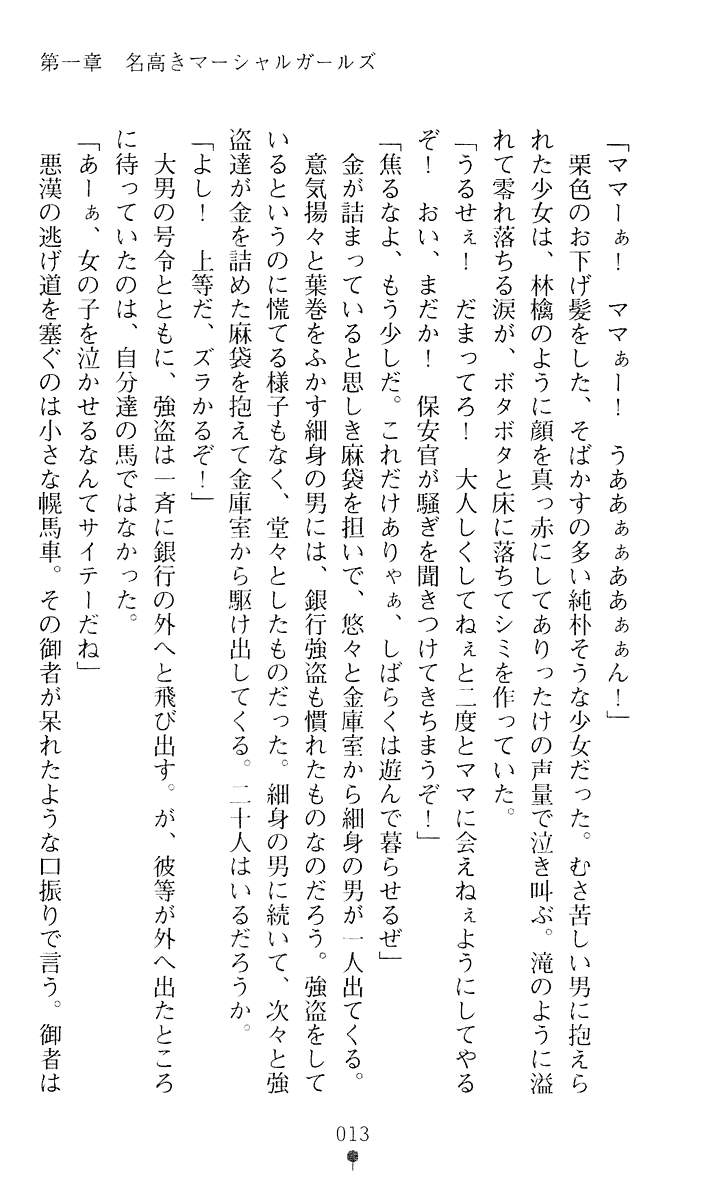 第一章　名高きマーシャルガールズ
「ママーぁ！　ママぁー！　うああぁぁああぁぁん！」
　栗色のお下げ髪をした、そばかすの多い純朴そうな少女だった。むさ苦しい男に抱えら
れた少女は、林檎のように顔を真っ赤にしてありったけの声量で泣き叫ぶ。滝のように溢
れて零れ落ちる涙が、ボタボタと床に落ちてシミを作っていた。
「うるせぇ！　だまってろ！　大人しくしてねぇと二度とママに会えねぇようにしてやる
ぞ！　おい、まだか！　保安官が騒ぎを聞きつけてきちまうぞ！」
「焦るなよ、もう少しだ。これだけありゃぁ、しばらくは遊んで暮らせるぜ」
　金が詰まっていると思しき麻袋を担いで、悠々と金庫室から細身の男が一人出てくる。
　意気揚々と葉巻をふかす細身の男には、銀行強盗も慣れたものなのだろう。強盗をして
いるというのに慌てる様子もなく、堂々としたものだった。細身の男に続いて、次々と強
盗達が金を詰めた麻袋を抱えて金庫室から駆け出してくる。二十人はいるだろうか。
「よし！　上等だ、ズラかるぞ！」
　大男の号令とともに、強盗は一斉に銀行の外へと飛び出す。が、彼等が外へ出たところ
に待っていたのは、自分達の馬ではなかった。
「あーぁ、女の子を泣かせるなんてサイテーだね」
　悪漢の逃げ道を塞ぐのは小さな幌馬車。その御者が呆れたような口振りで言う。御者は
013